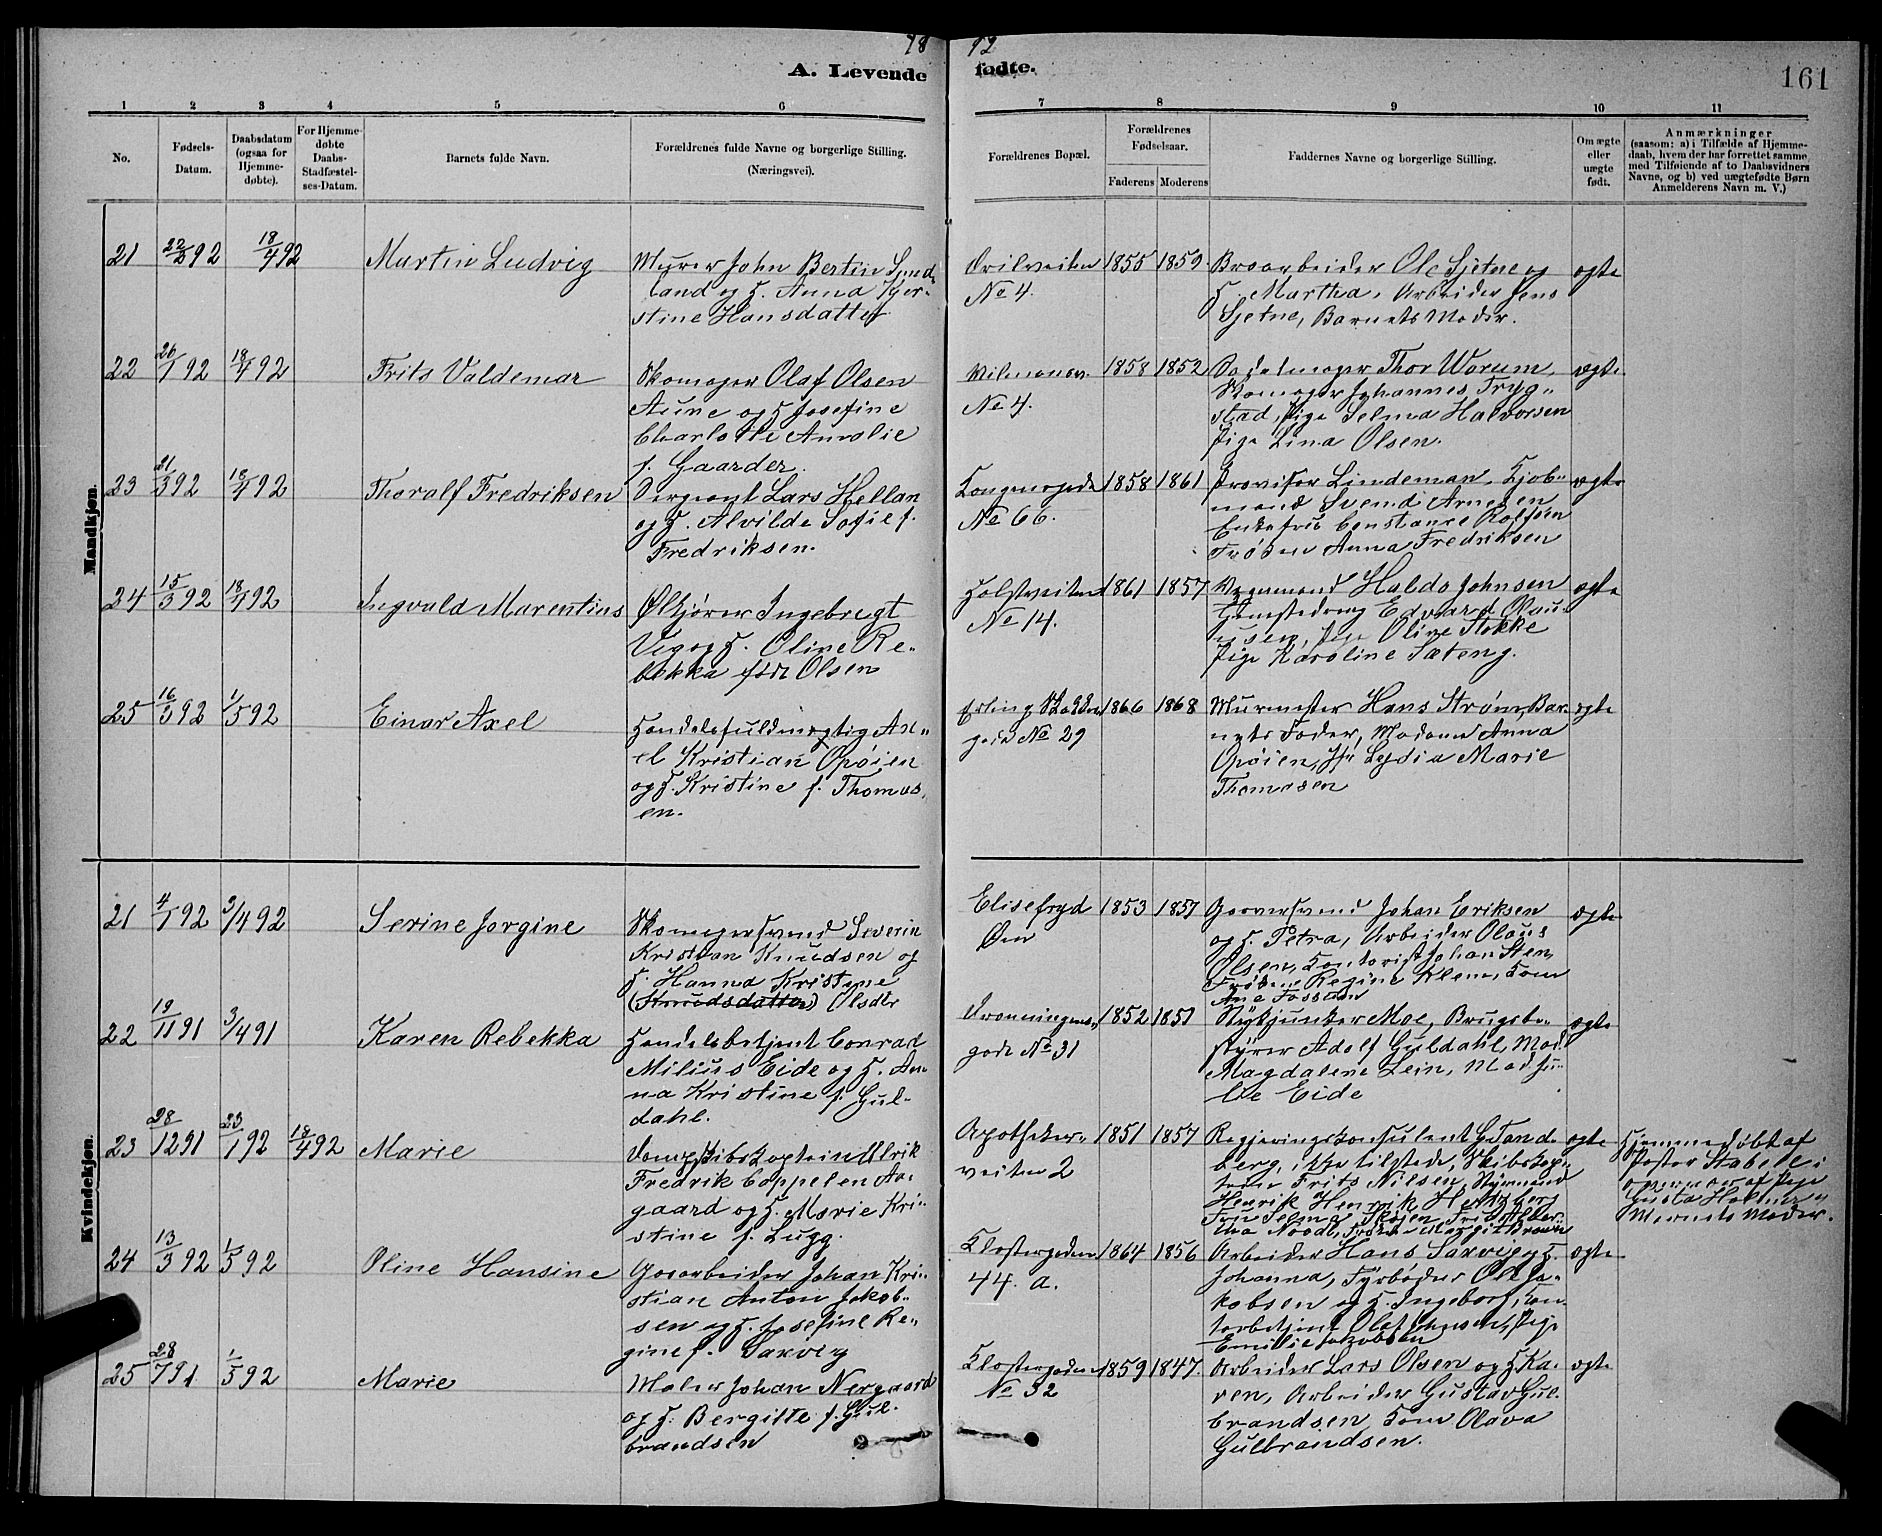 18 92
A. Levende fødte.
161
1 2 3 4 5 6 7 8 9 10 11
No.
Fødsels-
Datum.
Daabsdatum
(ogsaa for
Hjemme-
døbte).
For Hjemme-
døbte
Daabs-
Stadfæstel-
ses-Datum.
Barnets fulde Navn.
Forældrenes fulde Navne og borgerlige Stilling.
(Næringsvei).
Forældrenes Bopæl.
Forældrenes
Fødselsaar.
Faderens Moderens
Faddernes Navne og borgerlige Stilling.
Om ægte
eller
uægte
født.
Anmærkninger
(saasom: a) i Tilfælde af Hjemme-
daab, hvem der har forrettet samme,
med Tilføiende af to Daabsvidners
Navne, og b) ved uægtefødte Børn
Anmelderens Navn m. V.)
Mandkjøn.
21 22/2 92 18/4 92 Martin Ludvig
Murer John Bertin
land og H. Anna Kjer-
stine Hansdatter
No 4.
1855 1859
Broarbeider Ole Sjetne og
H. Martha, Arbeider Jens
Sjetne, Barnets Moder.
ægte
22 26/1 92 18/4 92 Frits Valdemar
Skomager Olaf Olsen
Aune og H. Josefine
Charlotte Amalie
f. Gaarder.
No 4.
1858 1852
Thor Worum,
Skomager Johannes Tryg-
stad, Pige Selma Halvorsen
Pige Lina Olsen.
ægte
23 21/3 92 18/4 92 Thoralf Fredriksen
Sergeant Lars Hellan
og H. Alvilde Sofie f.
Fredriksen.
Kongensgade
No 66.
1858 1861
Provisor Lindeman, Kjøb-
mand Svend Arnesen
Enkefru Constance Rolfsen
Frøken Anna Fredriksen
ægte
24 15/3 92 18/4 92 Ingvald Marentius
Ølkjører Ingebrigt
Vig og H. Oline Re-
bekka født Olsen
Holstveiten
No 14.
1861 1857
Vognmand Haldo Johnsen
Edvard Olau-
sen, Pige Oline Stokke
Pige Karoline Sæteng.
ægte
25 16/3 92 1/5 92 Einar Axel
Handelsfuldmægtig Ax-
el Kristian Opøien
og H. Kristine f. Thomas-
en.
Erling Skakkes
gade No 29
1866 1868
Murmester Hans Strøm, Bar-
nets Fader, Madam Anna
Opøien, Lydia Marie
Thomasen
ægte
Kvindekjøn.
21 4/1 92 3/4 92 Serine Jorgine
Skomagersvend Severin
Kristian Knudsen og
H. Hanna Kristine
(Knudsdatter) Olsdtr
Elisefryd
Øen
1853 1857
Garversvend Johan Eriksen
og H. Petra, Arbeider Olaus
Olsen, Kontorist Johan Sten,
Frøken Regine Klem, Kone
Ane Fossum
ægte
22 19/11 91 3/4 91 Karen Rebekka
Handelsbetjent Conrad
Milius Eide og H. An-
na Kristine f. Gul-
dahl.
Dronningens-
gade No 31
1852
Stykjunker Moe, Brugsbe-
styrer Adolf Guldahl, Mad.
Magdalene Lein, Mad. Ju-
lie Eide
ægte
23 28/12 91 23/1 92 18/4 92 Marie
Dampskibskaptein Ulrik
Fredrik Coppelen Aa-
gaard og H. Marie Kri-
stine f. Lugg.
Apotheker-
veiten 2
1851 1857
Regjeringskonsulent G Tand-
berg, ikke tilstede, Skibskap-
tein Frits Nilsen, Styrmand
Henrik Henrik Hertzberg
Fru Selma
ægte
Hjemmedøbt af
Pastor Stabell i
nærvær af Pige
Gusta
Barnets Moder.
24 13/3 92 1/5 92 Oline Hansine
Gasarbeider Johan Kri-
stian Anton Jakob-
sen og H. Josefine Re-
gine f. Saxvig
Klostergaden
44. a.
1864 1856
Arbeider Hans Saxvig og H.
Johanna, Fyrbøder Ole Ja-
kobsen og H. Ingeborg, Kon-
torbetjent Olaf Johnsen, Pige
Emilie Jakobsen
ægte
25 28/7 91 1/5 92 Marie
Maler Johan Nergaard
og H. Bergitte f. Gul-
brandsen
Klostergaden
No 32
1859 1847.
Arbeider Lars Olsen og H Ka-
ren, Arbeider Gustav Gul-
brandsen, Kone Olava
Gulbrandsen.
ægte